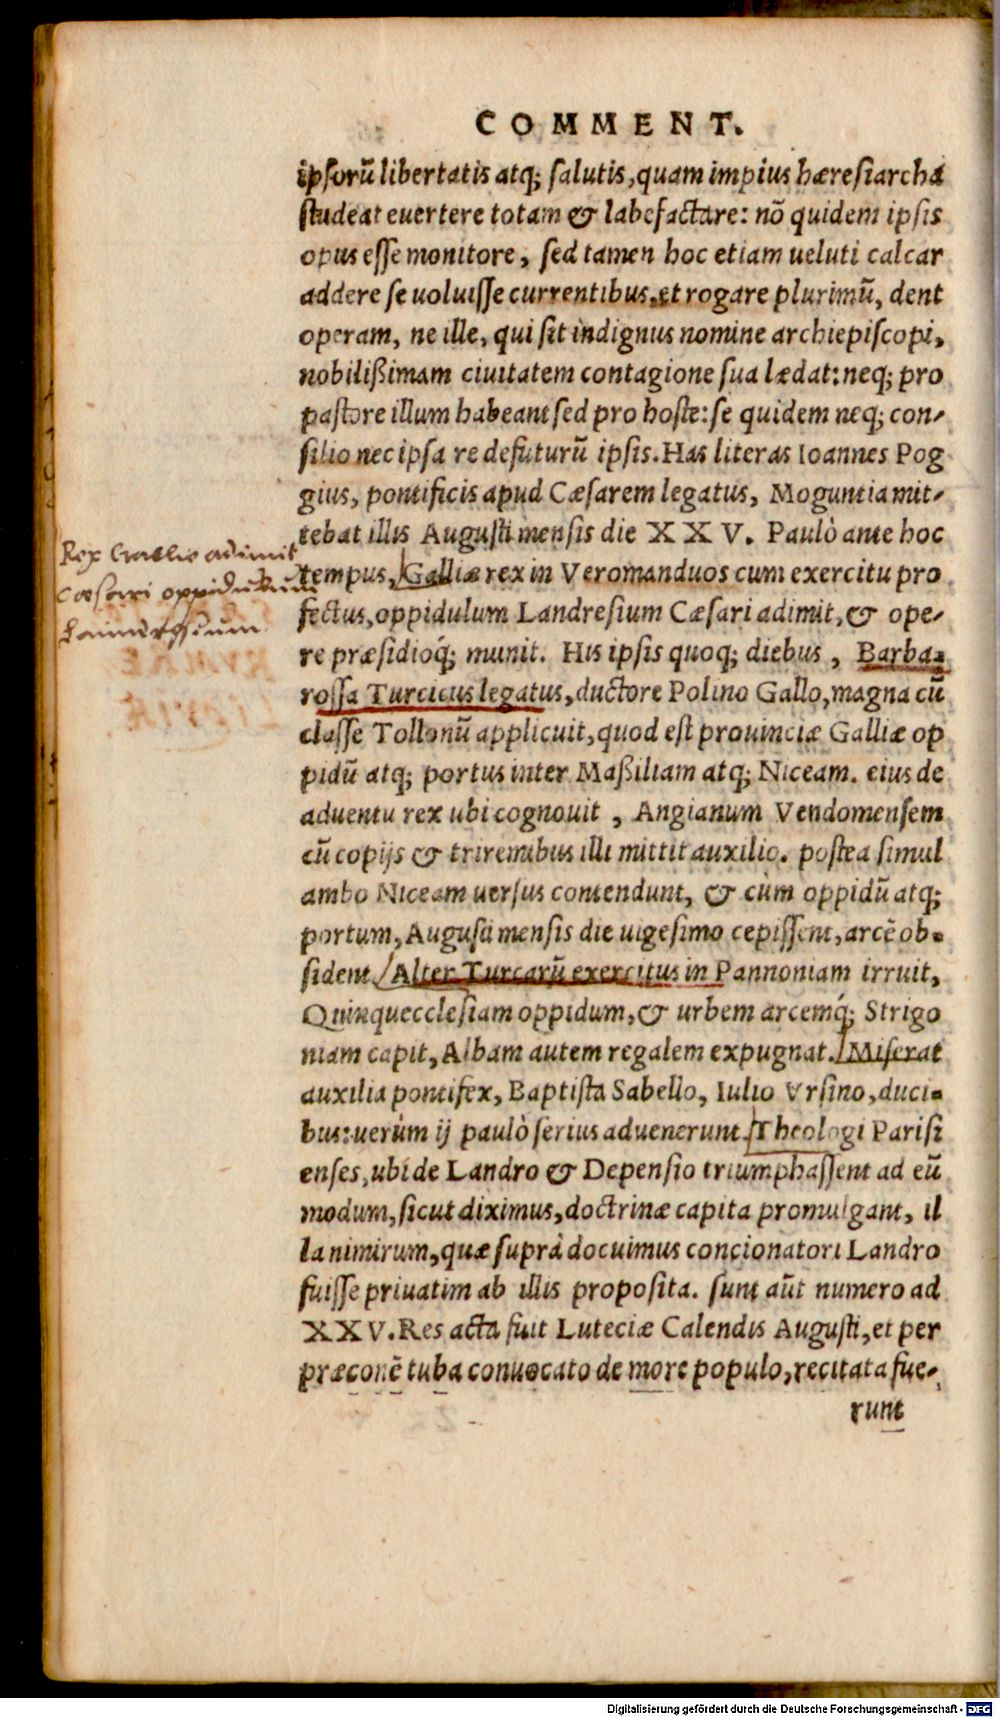 COMMENT.
ipsorũ libertatis atq; salutis, quam impius hæresiarcha
studeat euertere totam & labefactare: nõ quidem ipsis
opus esse monitore, sed tamen hoc etiam ueluti calcar
addere se uoluisse currentibus, et rogare plurimũ, dent
operam, ne ille, qui sit indignus nomine archiepiscopi,
nobilißimam ciuitatem contagione sua lædat: neq; pro
pastore illum habeant sed pro hoste: se quidem neq; con-
silio nec ipsa re defuturũ ipsis. Has literas Ioannes Pog
gius, pontificis apud Cæsarem legatus, Moguntia mit-
tebat illis Augusti mensis die XXV. Paulò ante hoc
tempus, Galliæ rex in Veromanduos cum exercitu pro
fectus, oppidulum Landresium Cæsari adimit, & ope-
re præsidioq́; munit. His ipsis quoq; diebus, Barba-
rossa Turcicus legatus, ductore Polino Gallo, magna cũ
classe Tollonũ applicuit, quod est prouinciæ Galliæ op
pidũ atq; portus inter Maßiliam atq; Niceam. eius de
aduentu rex ubi cognouit, Angianum Vendomensem
cũ copijs & triremibus illi mittit auxilio. postea simul
ambo Niceam uersus contendunt, & cùm oppidũ atq;
portum, Augusti mensis die uigesimo cepissent, arcẽ ob-
sident. Alter Turcarũ exercitus in Pannoniam irruit,
Quinquecclesiam oppidum, & urbem arcemq́; Strigo
niam capit, Albam autem regalem expugnat. Miserat
auxilia pontifex, Baptista Sabello, Iulio Vrsino, duci-
bus: uerùm ij paulò serius aduenerunt. Theologi Parisi
enses, ubi de Landro & Depensio triumphassent ad eũ
modum, sicut diximus, doctrinæ capita promulgant, il
la nimirum, quæ suprà docuimus concionatori Landro
fuisse priuatim ab illis proposita. sunt aũt numero ad
XXV. Res acta fuit Luteciæ Calendis Augusti, et per
præconẽ tuba conuocato de more populo, recitata fue-
runt
Rex Galliae adimit
Caesari oppidulum
Landresium
Digitalisierung gefördert durch die Deutsche Forschungsgemeinschaft - DFG